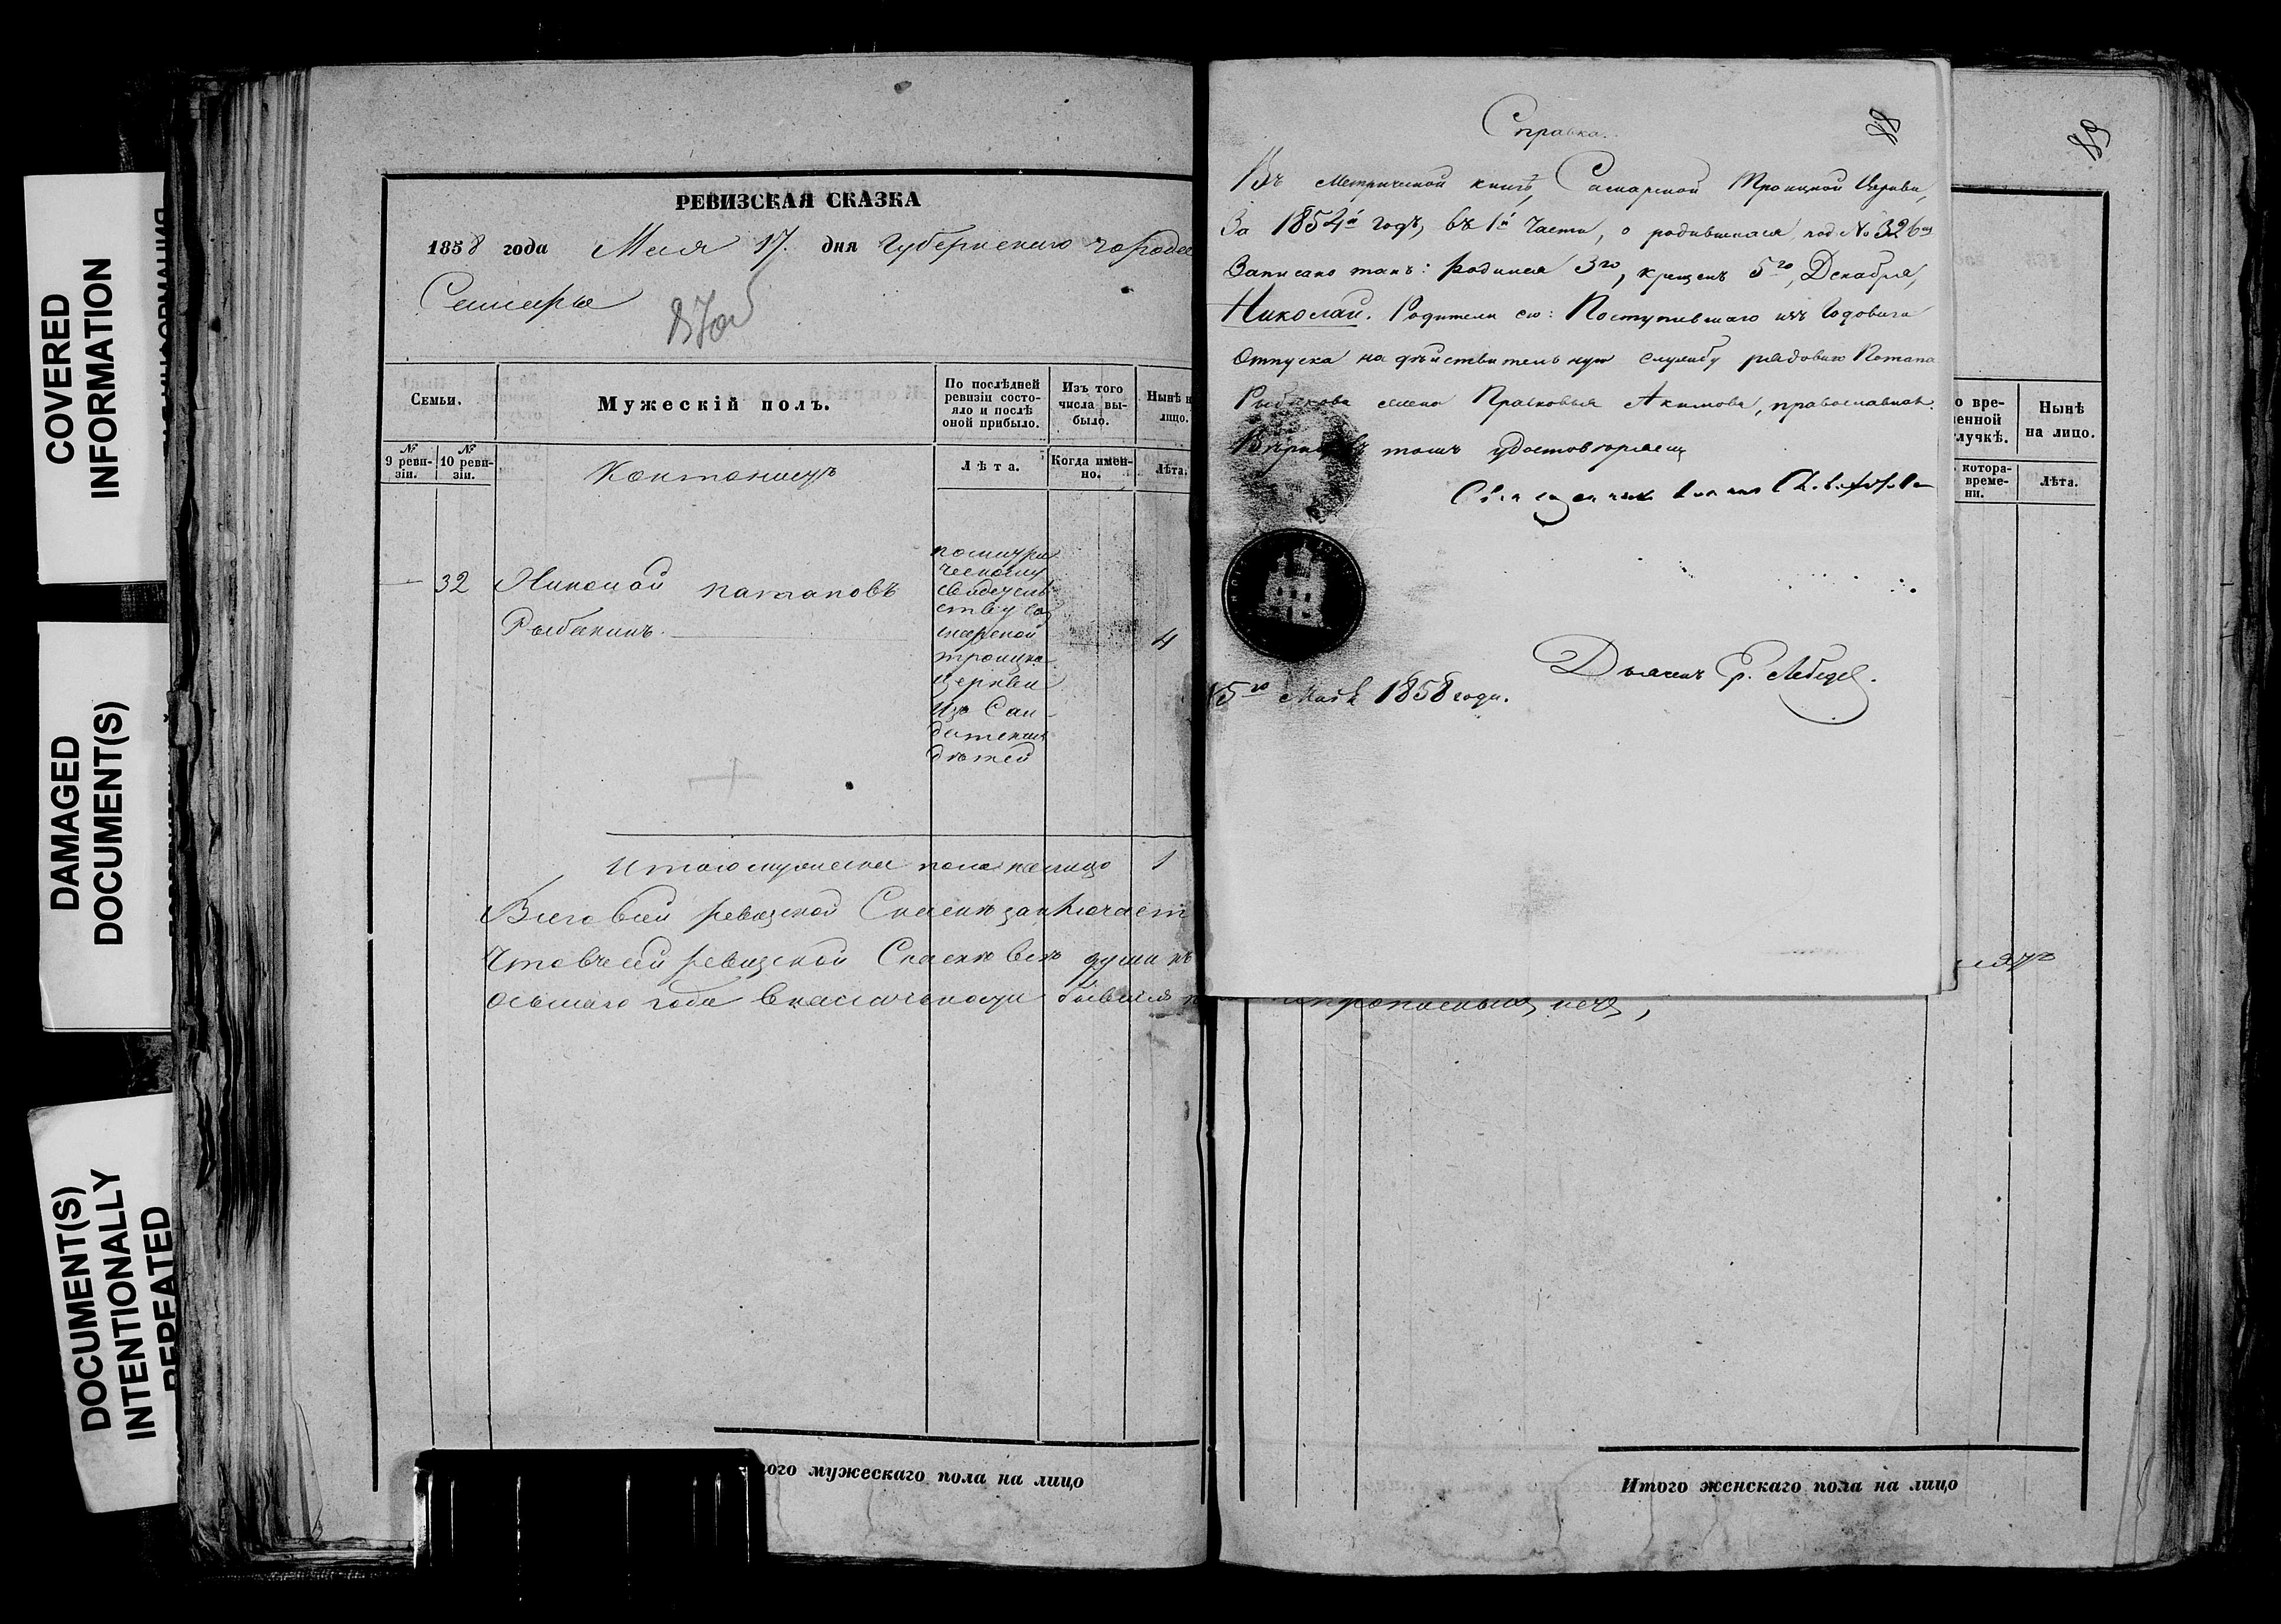 COVERED
INFORMATION
DAMAGED
DOCUMENT(S)
DOCUMENT(S)
INTENTIONALLY
REPEATED
РЕВИЗСКАЯ СКАЗКА
1858 года Мая 17. дня Губернскаго города
Самары
Семьи.
Мужескій полъ.
По послѣдней
ревизіи состо-
яло и послѣ
оной прибыло.
Изъ того
числа вы-
было.
Нынѣ н
лицо.
№
9 реви-
зіи.
№
10 реви-
зіи.
Кантонистъ
Лѣта.
Когда имен-
но.
Лѣта.
32 Николай Патаповъ
Рыбакинъ.
по метри
ческому
свидетель
ству Са
марской
троицко
церкви
Изъ Сал
датскихъ
дѣтей
4
Итого мужеска пола налицо 1
ревизской Сказки
ревизской Сказки всѣ души
года
ого мужескаго пола на лицо
88
Справка.
Въ Метрической книгѣ, Самарской Троицкой Церкви,
За 1854й годъ, въ 1й части, о родившихся, под № 326м
Записано такъ: родился 3го, крещенъ 5го, Декабря,
Николай. Родители его: Поступившаго изъ Годоваго
Отпуска на дѣйствительную службу рядоваго Потапа
Рыбакова жена Прасковья Акимова, православная.
Въ томъ удостовѣряемъ
Священникъ
Дьяконъ Лебедев.
15го Маія 1858 года.
89
о вре-
енной
лучкѣ.
Нынѣ
на лицо.
котора-
време-
ни.
Лѣта.
Итого женскаго пола на лицо